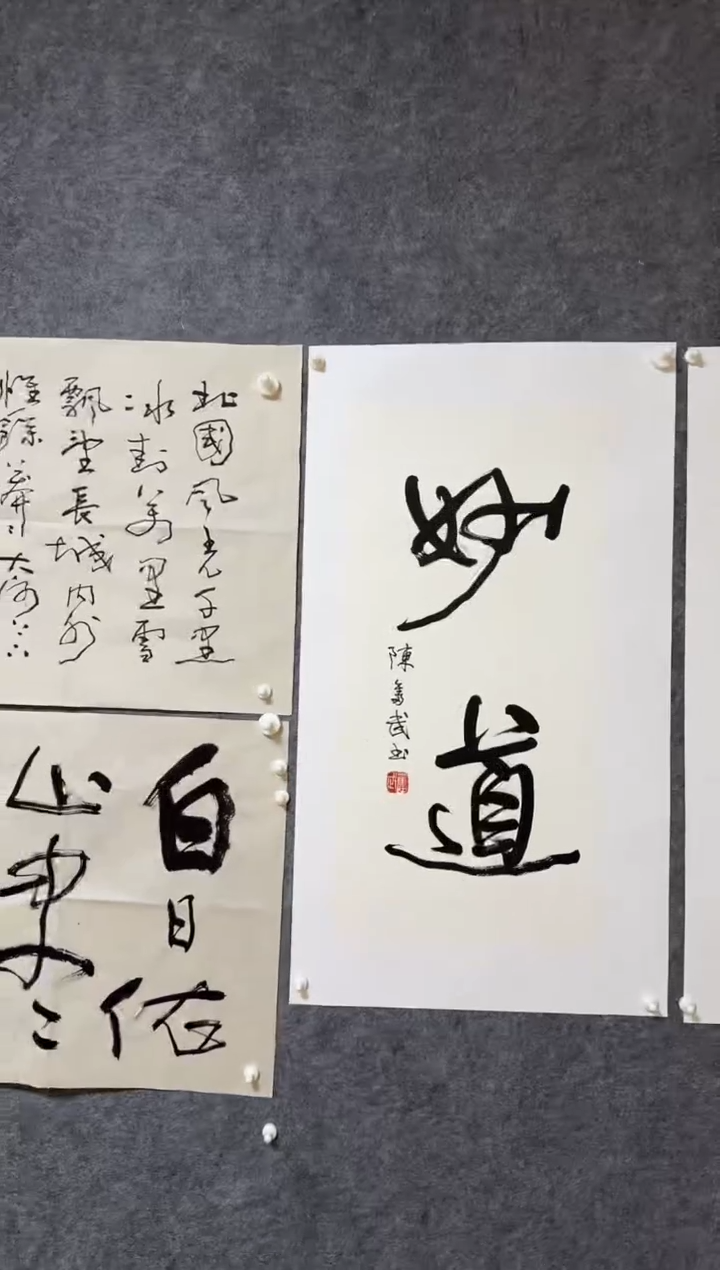 妙道
陳
北國風光千里
冰封萬里雪
飄望長城内外
惟餘莽〻大河
白日依
山